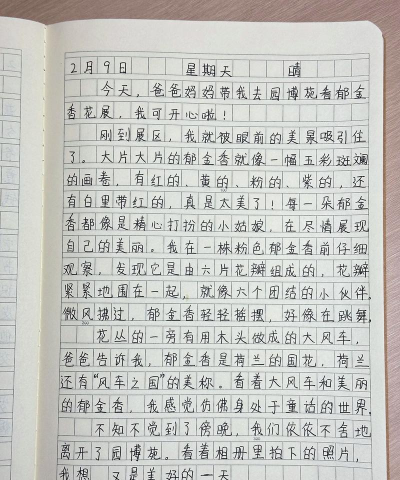 2月9日 星期天 晴
今天，爸爸妈妈带我去园博苑看郁金
香花展，我可开心啦！
刚到展区，我就被眼前的美景吸引住
了。大片大片的郁金香就像一幅五彩斑斓
的画卷，有红的、黄的、粉的、紫的，还
有白里带红的，真是太美了！每一朵郁金
香都像是精心打扮的小姑娘，在尽情展现
自己的美丽。我在一株粉色郁金香前仔细
观察，发现它是由六片花瓣组成的，花瓣
紧紧地围在一起，就像六个团结的小伙伴，
微风拂过，郁金香轻轻摇摆，好像在跳舞。
花丛的一旁有用木头做成的大风车，
爸爸告诉我，郁金香是荷兰的国花，荷兰
还有“风车之国”的美称。看着大风车和美丽
的郁金香，我感觉仿佛身处于童话的世界。
不知不觉到了傍晚，我们依依不舍地
离开了园博苑。看着相册里拍下的照片，
我想，又是美好的一天